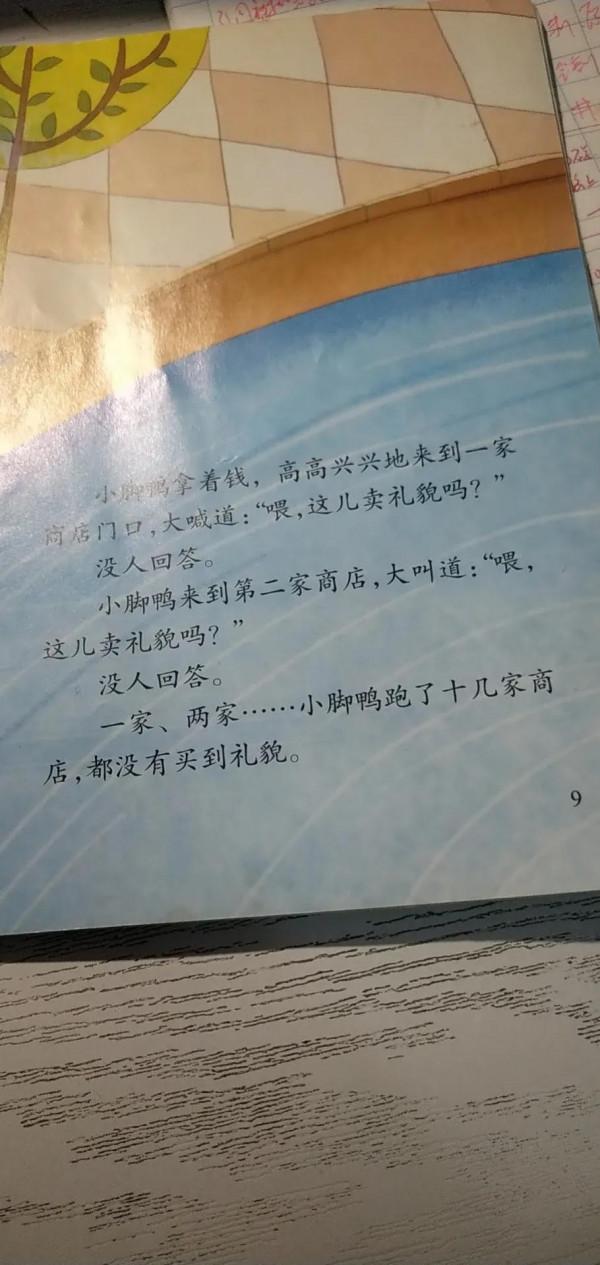 小脚鸭拿着钱，高高兴兴地来到一家
商店门口，大喊道：“喂，这儿卖礼貌吗？”
没人回答。
小脚鸭来到第二家商店，大叫道：“喂，
这儿卖礼貌吗？”
没人回答。
一家、两家……小脚鸭跑了十几家商
店，都没有买到礼貌。
9